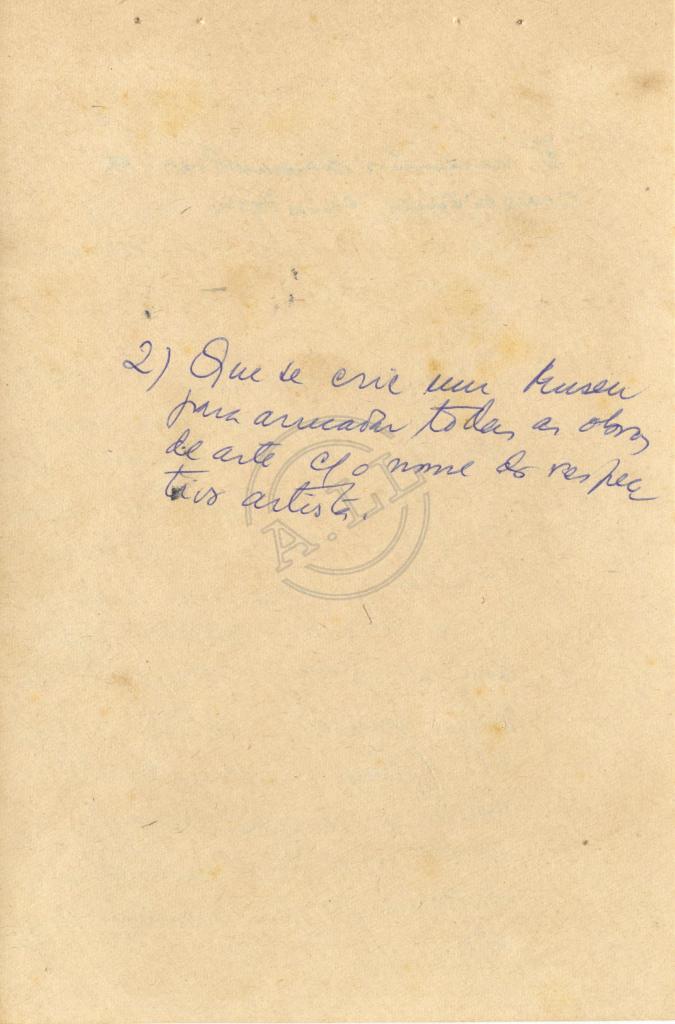 2) Que se crie um Museu
para arrecadar todas as obras
de arte c/ o nome do respec
tivo artista.
A.LI